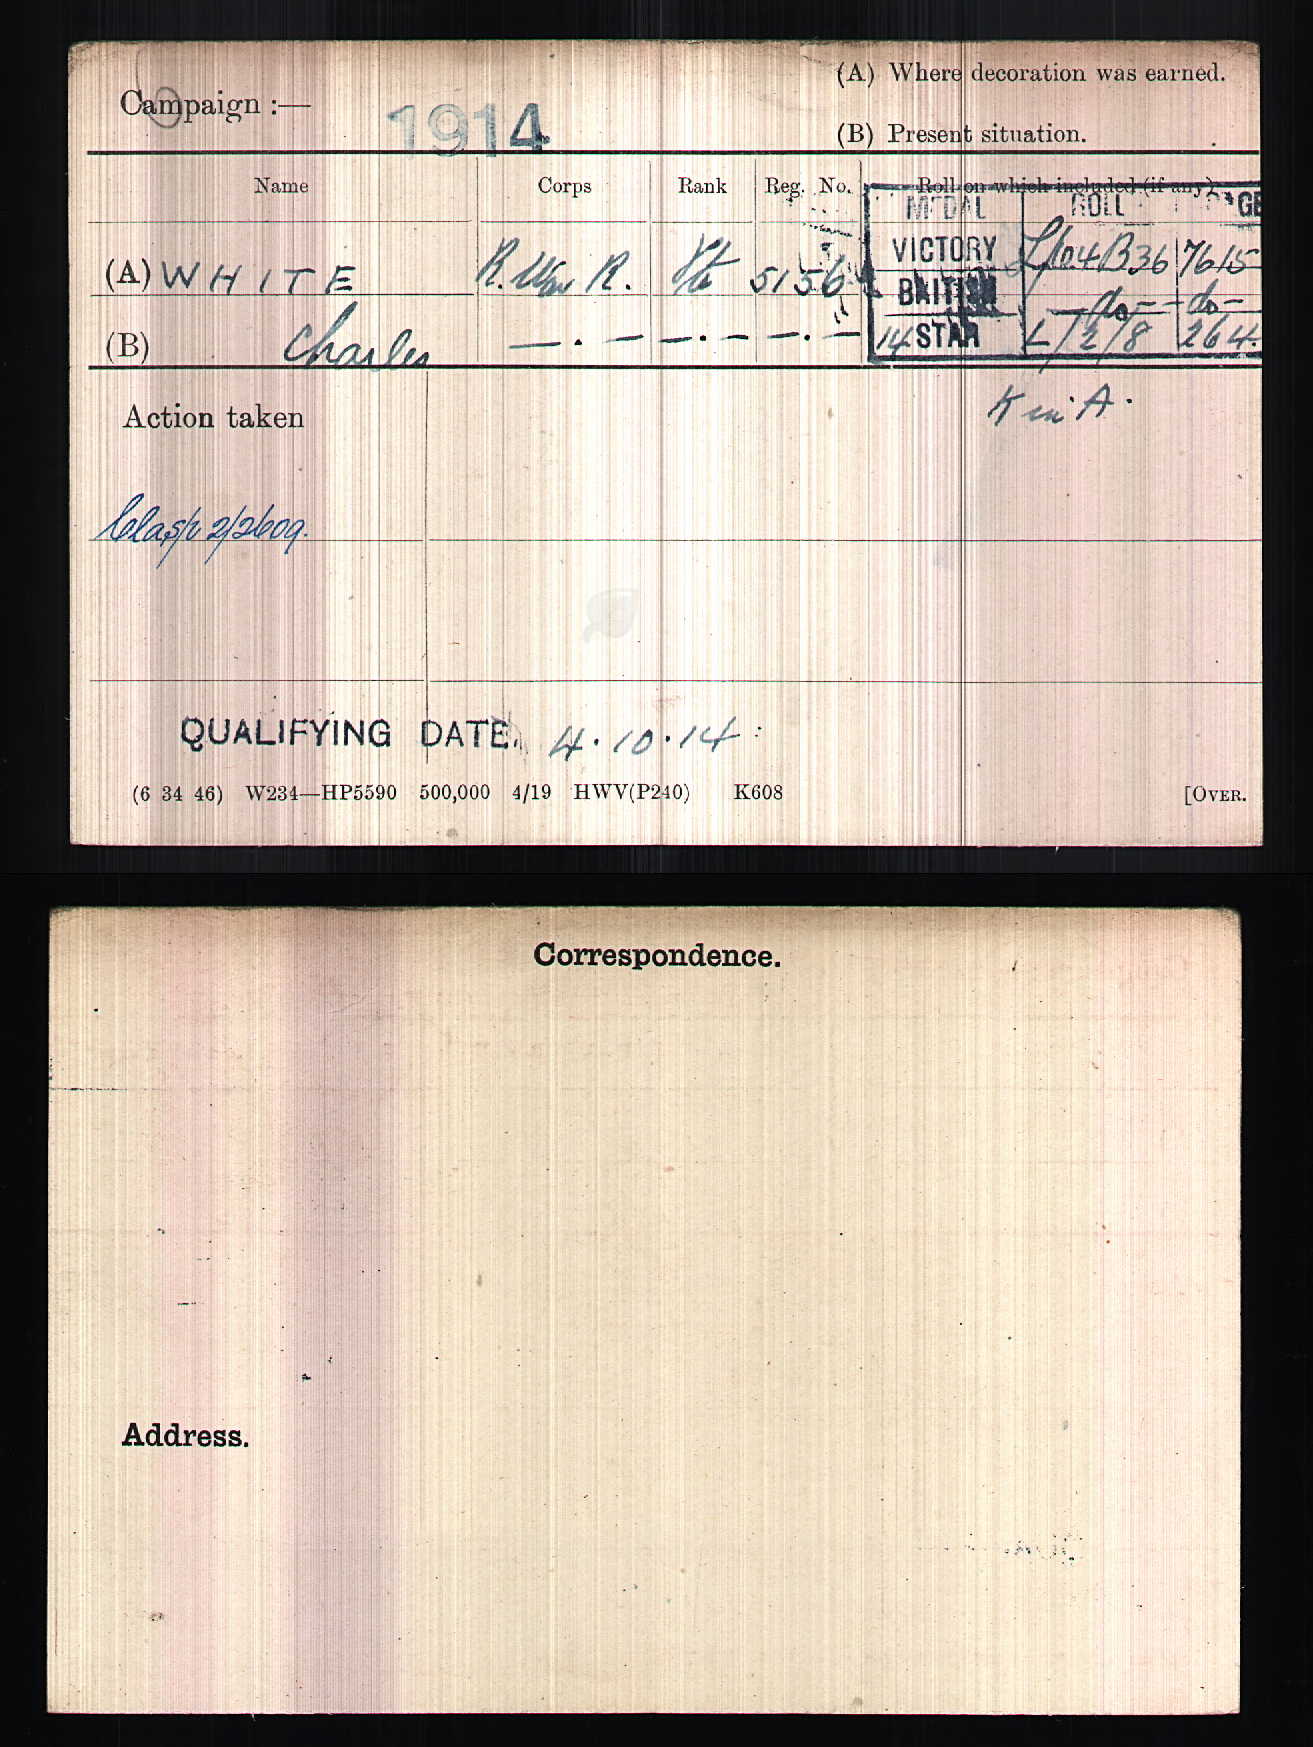 Campaign :—
1914
(A) Where decoration was earned.
(B) Present situation.
Name Corps Rank Reg. No. Roll on which included (if any).
MEDAL ROLL PAGE
(A) WHITE R. War R. Pte 5156 VICTORY L/104B36 7615
BRITISH —do— —do—
(B) Charles — . — — . — — . — 14 STAR L/2/8 264.
K in A.
Action taken
Clasp 2/2609.
QUALIFYING DATE. 4.10.14
(6 34 46) W234—HP5590 500,000 4/19 HWV(P240) K608 [OVER.
Correspondence.
Address.